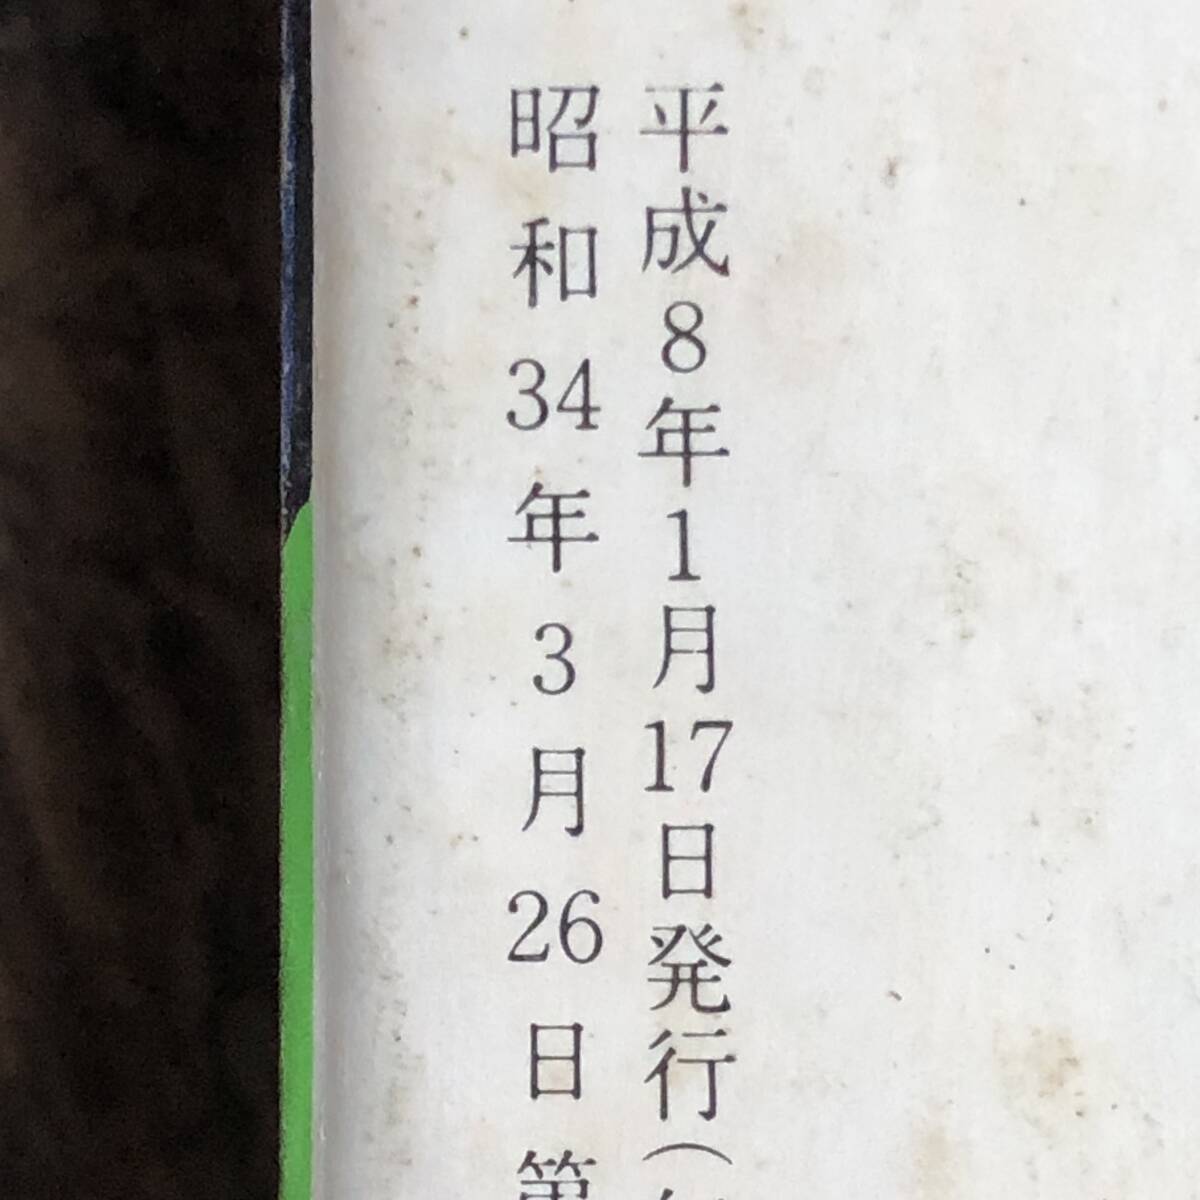 平成8年1月17日発行(
昭和34年3月26日第